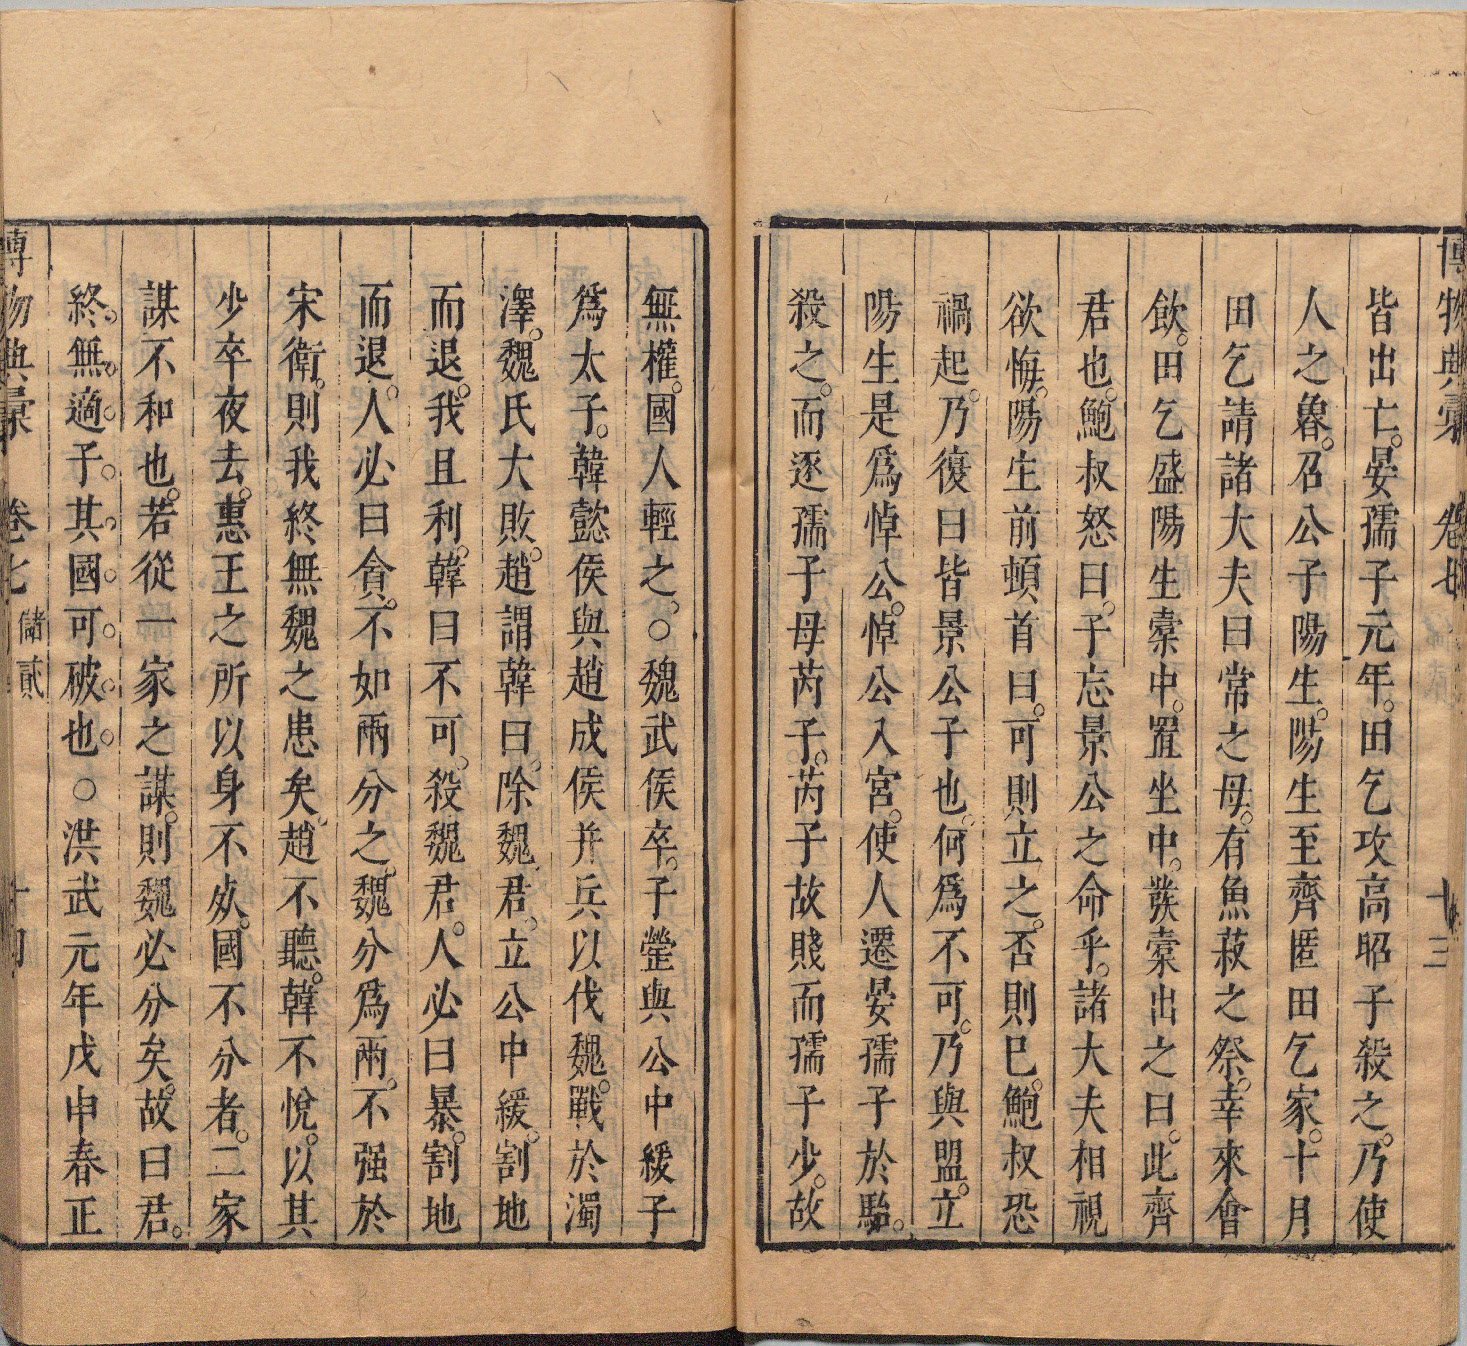 博物典彙 卷七 十三
皆出亡。晏孺子元年。田乞攻高昭子殺之。乃使
人之魯。召公子陽生。陽生至齊匿田乞家。十月
田乞請諸大夫曰常之母。有魚菽之祭。幸來會
飲。田乞盛陽生橐中。置坐中。發橐出之曰。此齊
君也。鮑叔怒曰。子忘景公之命乎。諸大夫相視
欲悔。陽生前頓首曰。可則立之。否則已。鮑叔恐
禍起。乃復曰皆景公子也。何爲不可。乃與盟。立
陽生是爲悼公。悼公入宮。使人遷晏孺子於駘。
殺之。而逐孺子母芮子。芮子故賤而孺子少。故
無權。國人輕之。○魏武侯卒。子罃與公中緩子
爲太子。韓懿侯與趙成侯并兵以伐魏。戰於濁
澤。魏氏大敗。趙謂韓曰。除魏君。立公中緩。割地
而退。我且利。韓曰不可。殺魏君。人必曰暴。割地
而退。人必曰貪。不如兩分之。魏分爲兩。不强於
宋衛。則我終無魏之患矣。趙不聽。韓不悅。以其
少卒夜去。惠王之所以身不死。國不分者。二家
謀不和也。若從一家之謀。則魏必分矣。故曰君。
終。無。適。子。其。國。可。破。也。○洪武元年戊申春正
博物典彙 卷七 儲貳 十四